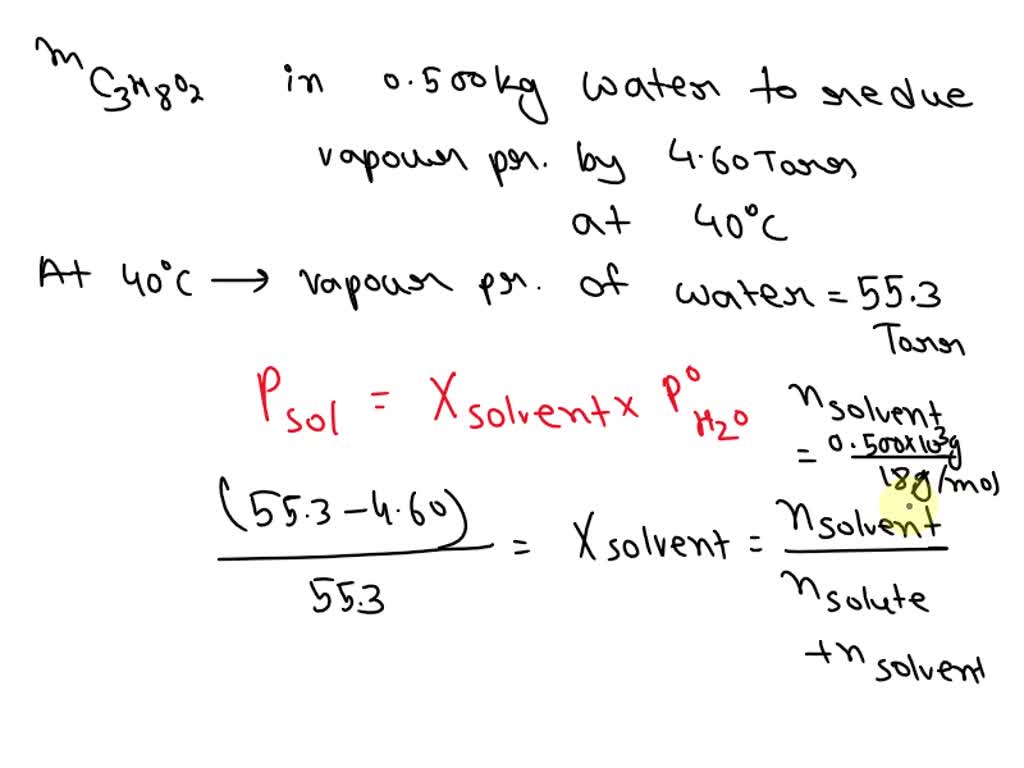 m C3H8O2 in 0.500kg water to redue
vapour pr. by 4.60 Torr
at 40°C
At 40°C → vapour pr. of water = 55.3
Torr
P sol = X solvent x P° H2O
n solvent
= 0.500x10³g
18g/mol
(55.3-4.60)
55.3
= X solvent = n solvent
n solute
+n solvent